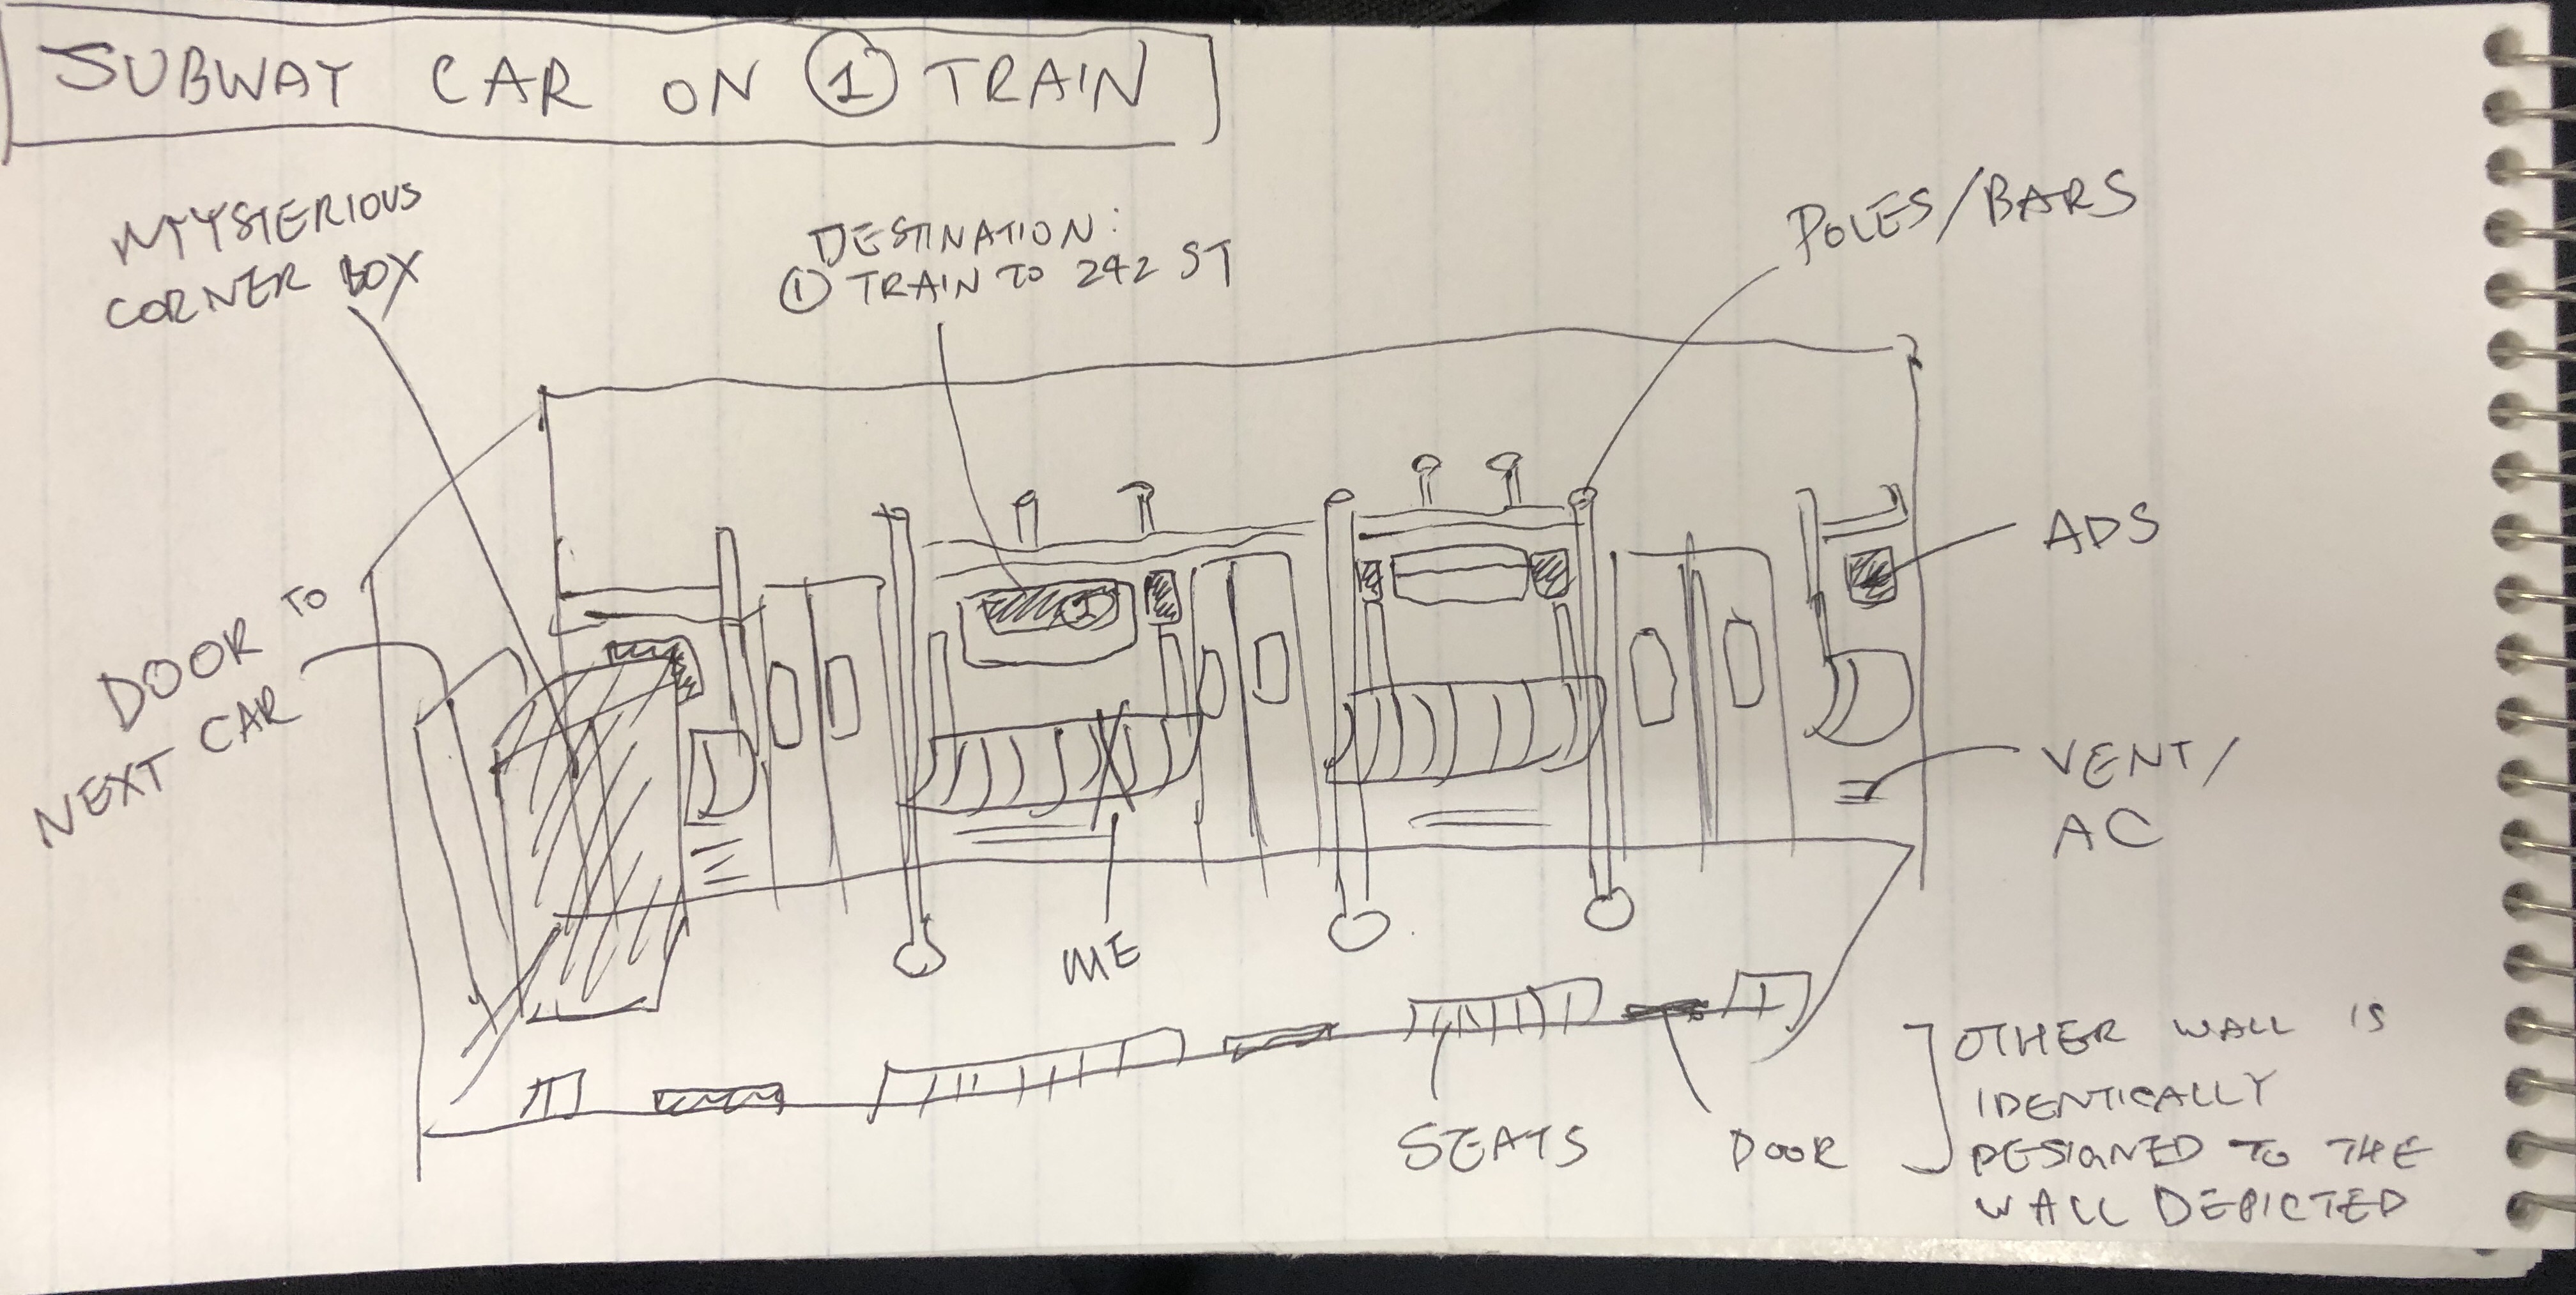 SUBWAY CAR ON ① TRAIN
MYSTERIOUS
CORNER BOX
DESTINATION:
① TRAIN TO 242 ST
POLES/BARS
ADS
DOOR TO
NEXT CAR
1
VENT/
AC
ME
SEATS
DOOR
OTHER WALL IS
IDENTICALLY
DESIGNED TO THE
WALL DEPICTED